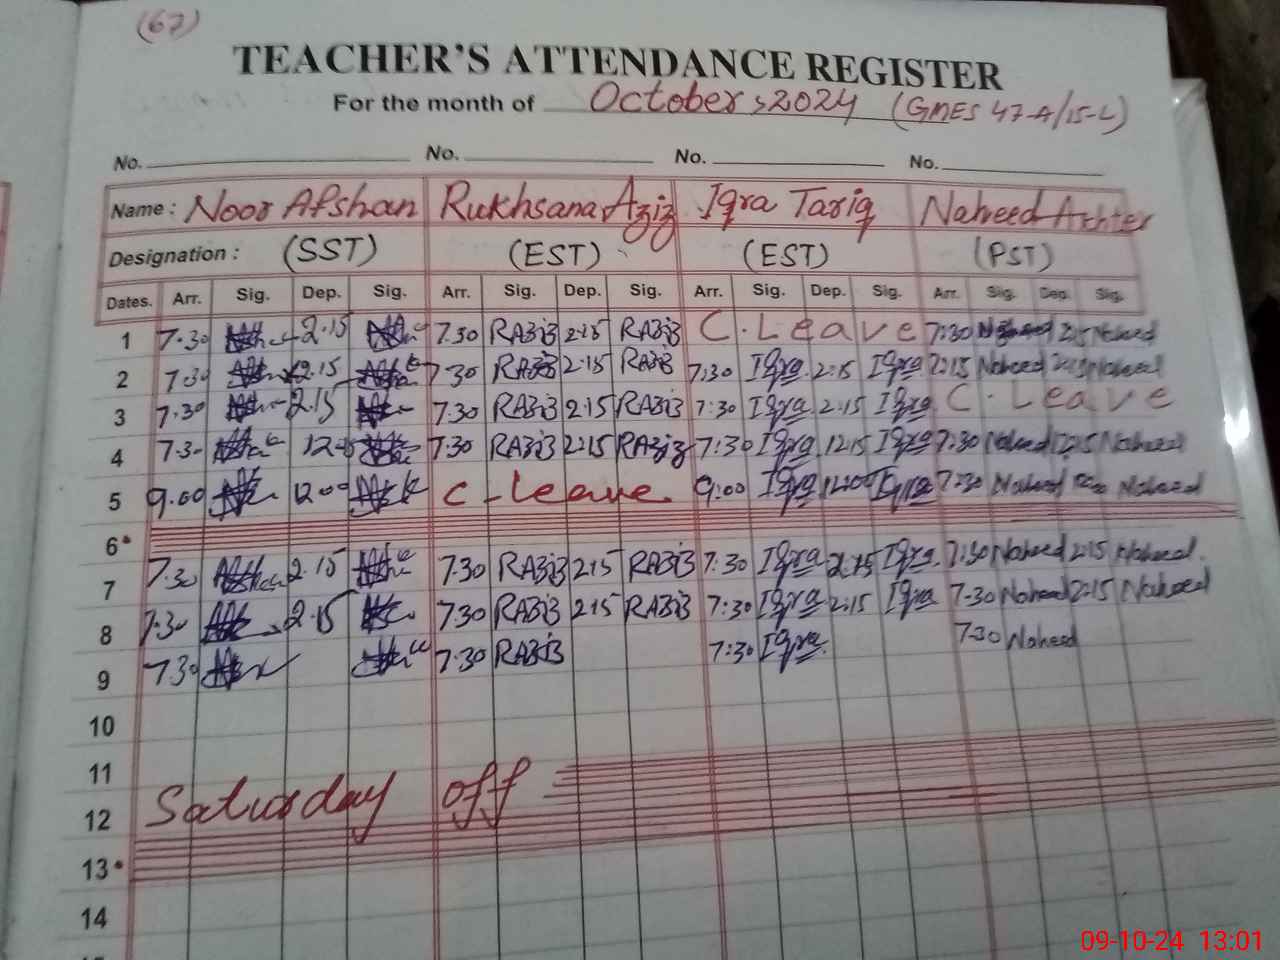 (67)
TEACHER'S ATTENDANCE REGISTER
For the month of October, 2024 (GMES 47-A/15-L)
No. No. No. No.
Name: Noor Afshan Rukhsana Aziz Iqra Tariq Naheed Achter
Designation: (SST) (EST) (EST) (PST)
Dates. Arr. Sig. Dep. Sig. Arr. Sig. Dep. Sig. Arr. Sig. Dep. Sig. Arr. Sig. Dep. Sig.
1 7.30 2.15 7.30 RAZiZ 2:15 RAZiZ C. Leave 7:30 2:15 Naheed
2 7.30 2.15 7.30 RAZiZ 2:15 RAZiZ 7:30 Iqra 2:15 Iqra 7:15 Naheed 2:15 Naheed
3 7.30 2.15 7.30 RAZiZ 2:15 RAZiZ 7:30 Iqra 2:15 Iqra C. Leave
4 7.30 7.30 RAZiZ RAZiZ 7:30 Iqra 12:15 Iqra 7:30 Naheed 12:15 Naheed
5 9.00 12.00 C - Leave. 9:00 Iqra 12:00 Iqra 7:30 Naheed Naheed
6
7 7.30 2.15 7.30 RAZiZ 2:15 RAZiZ 7:30 Iqra 2:15 Iqra. 7:30 Naheed 2:15 Naheed.
8 7.30 2.15 7.30 RAZiZ 2:15 RAZiZ 7:30 Iqra 2:15 Iqra 7-30 Naheed 2:15 Naheed
9 7.30 7.30 RAZiZ 7:30 Iqra. 7-30 Naheed
10
11
12 Saturday off
13
14
09-10-24 13:01